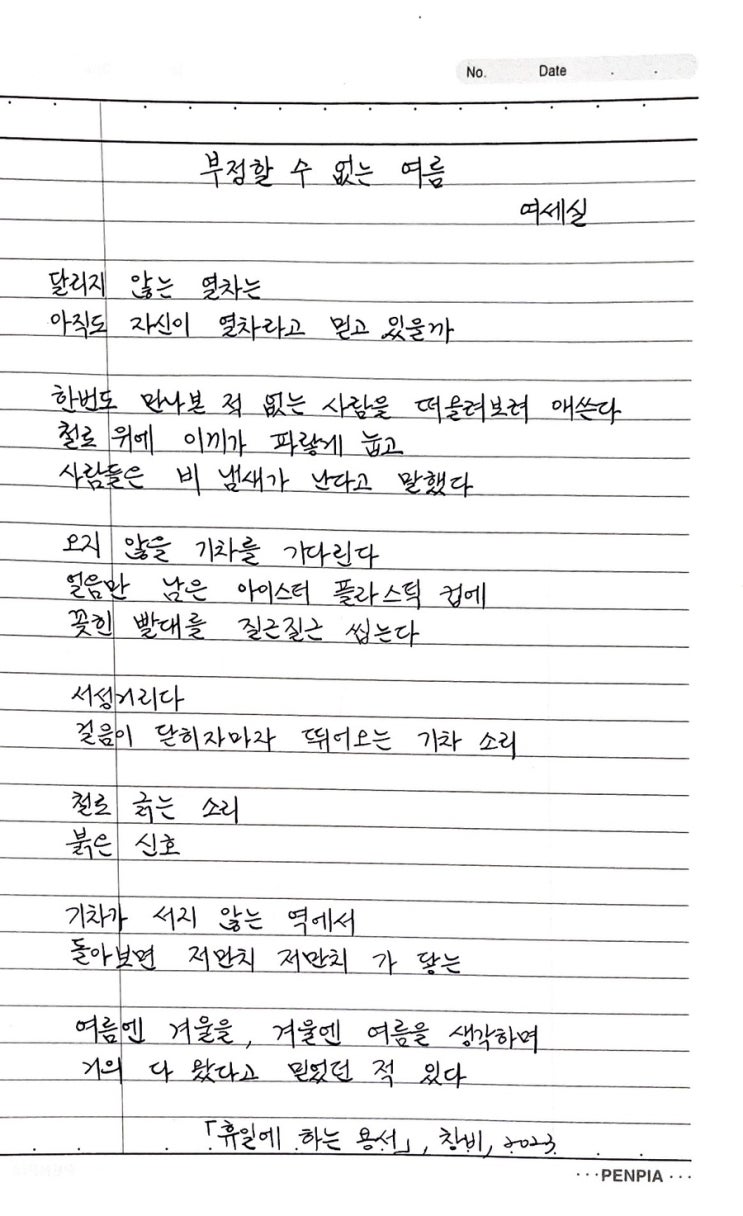 No. Date
부정할 수 없는 여름
여세실
달리지 않는 열차는
아직도 자신이 열차라고 믿고 있을까
한번도 만나본 적 없는 사람을 떠올려보려 애쓴다
철로 위에 이끼가 파랗게 눕고
사람들은 비 냄새가 난다고 말했다
오지 않을 기차를 기다린다
얼음만 남은 아이스티 플라스틱 컵에
꽂힌 빨대를 질근질근 씹는다
서성거리다
걸음이 닫히자마자 뛰어오는 기차 소리
철로 긁는 소리
붉은 신호
기차가 서지 않는 역에서
돌아보면 저만치 저만치 가 닿는
여름엔 겨울을, 겨울엔 여름을 생각하며
거의 다 왔다고 믿었던 적 있다
「휴일에 하는 용서」, 창비, 2023
···PENPIA···